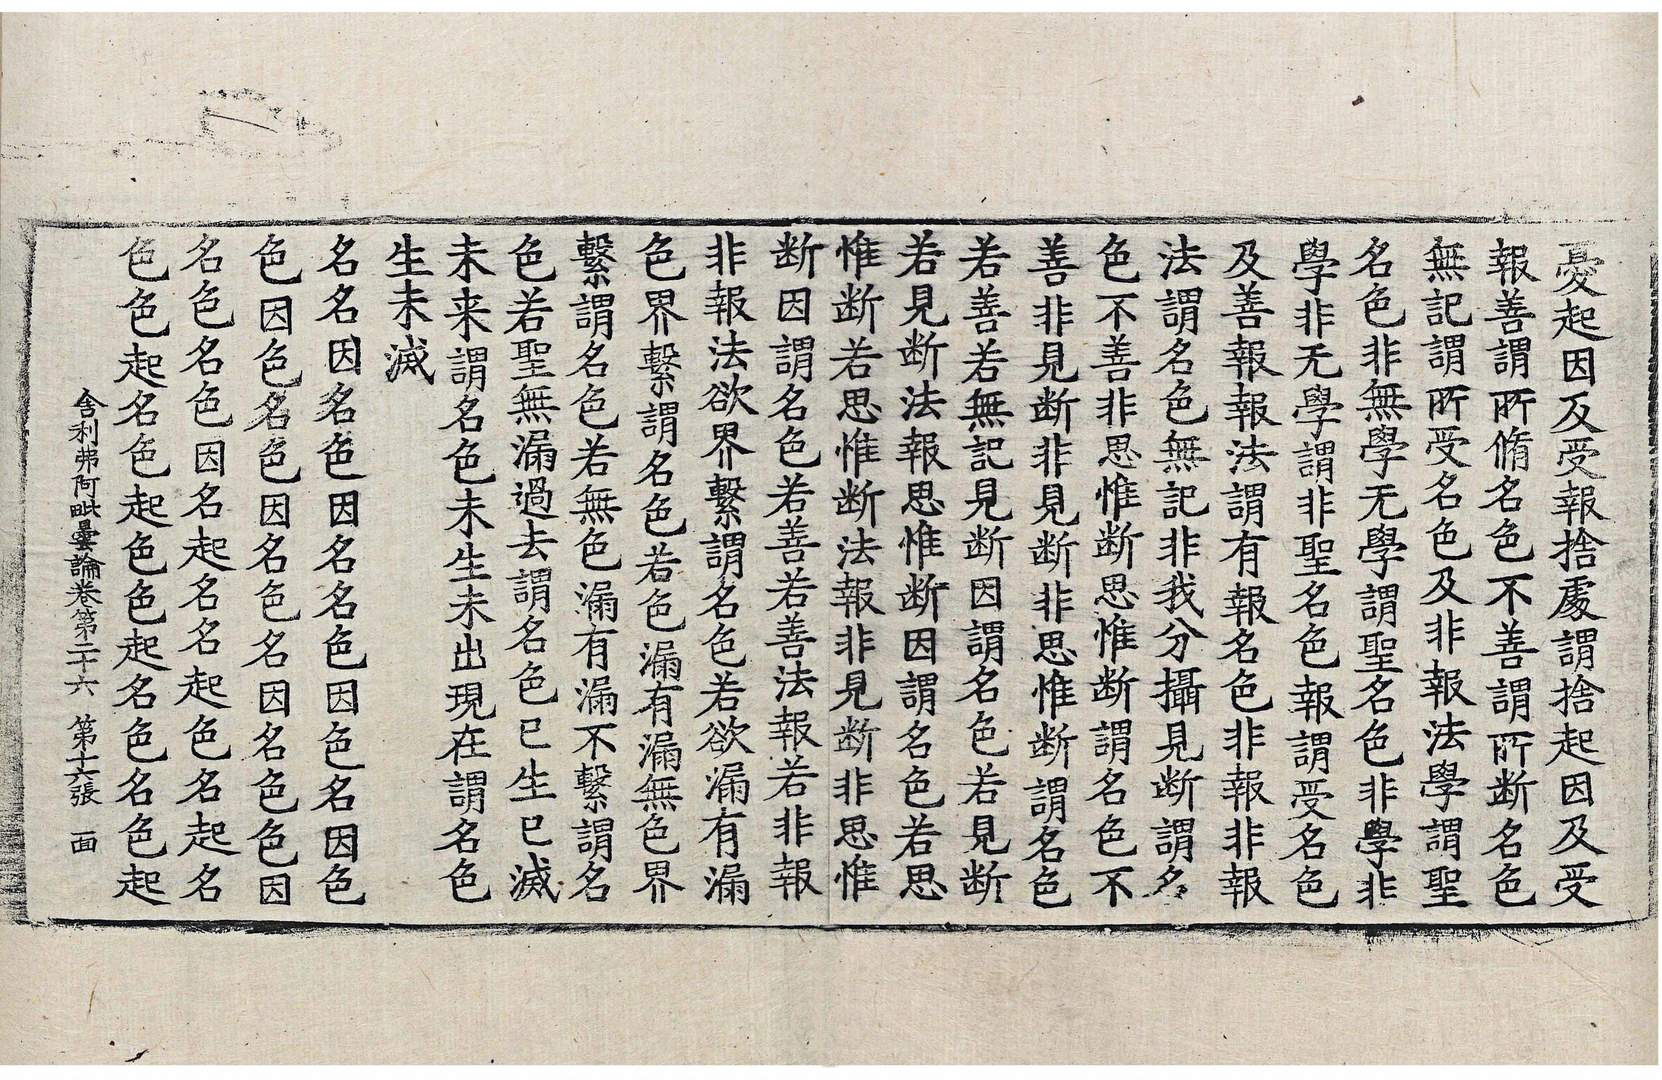 憂起因及受報捨處謂捨起因及受
報善謂所脩名色不善謂所断名色
無記謂所受名色及非報法學謂聖
名色非無學无學謂聖名色非學非
學非无學謂非聖名色報謂受名色
及善報報法謂有報名色非報非報
法謂名色無記非我分攝見断謂名
色不善非思惟断思惟断謂名色不
善非見断非見断非思惟断謂名色
若善若無記見断因謂名色若見断
若見断法報思惟断因謂名色若思
惟断若思惟断法報非見断非思惟
断因謂名色若善若善法報若非報
非報法欲界繫謂名色若欲漏有漏
色界繫謂名色若色漏有漏無色界
繫謂名色若無色漏有漏不繫謂名
色若聖無漏過去謂名色已生已滅
未来謂名色未生未出現在謂名色
生未滅
名名因名色因名名色因色名因色
色因色名色因名色名因名色色因
名色名色因名起名名起色名起名
色色起名色起色色起名色名色起
舍利弗阿毗曇論卷第二十六 第十六張 面